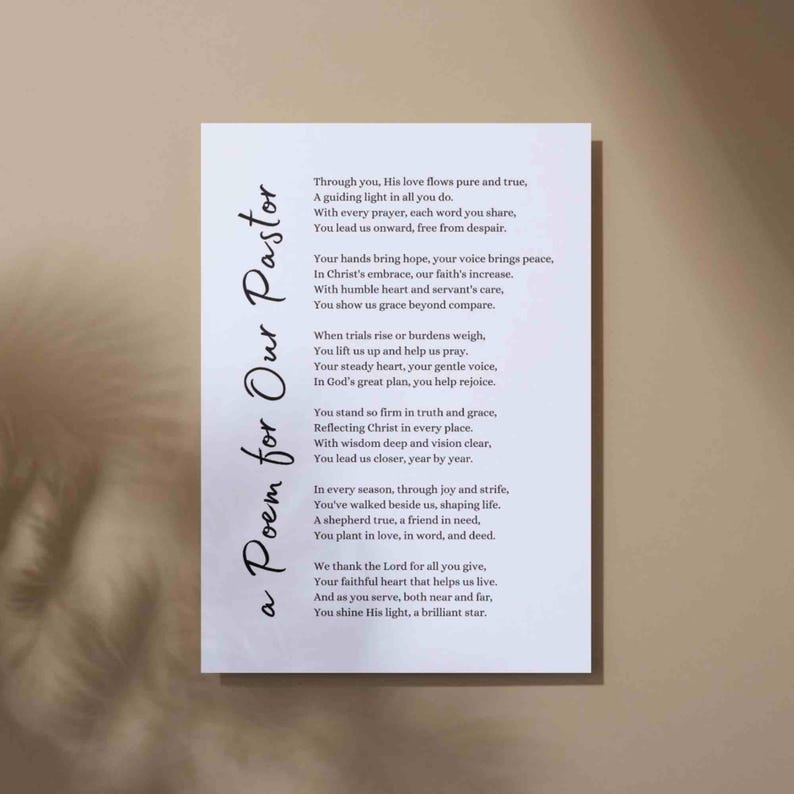 a Poem for Our Pastor
Through you, His love flows pure and true,
A guiding light in all you do.
With every prayer, each word you share,
You lead us onward, free from despair.
Your hands bring hope, your voice brings peace,
In Christ's embrace, our faith's increase.
With humble heart and servant's care,
You show us grace beyond compare.
When trials rise or burdens weigh,
You lift us up and help us pray.
Your steady heart, your gentle voice,
In God’s great plan, you help rejoice.
You stand so firm in truth and grace,
Reflecting Christ in every place.
With wisdom deep and vision clear,
You lead us closer, year by year.
In every season, through joy and strife,
You've walked beside us, shaping life.
A shepherd true, a friend in need,
You plant in love, in word, and deed.
We thank the Lord for all you give,
Your faithful heart that helps us live.
And as you serve, both near and far,
You shine His light, a brilliant star.